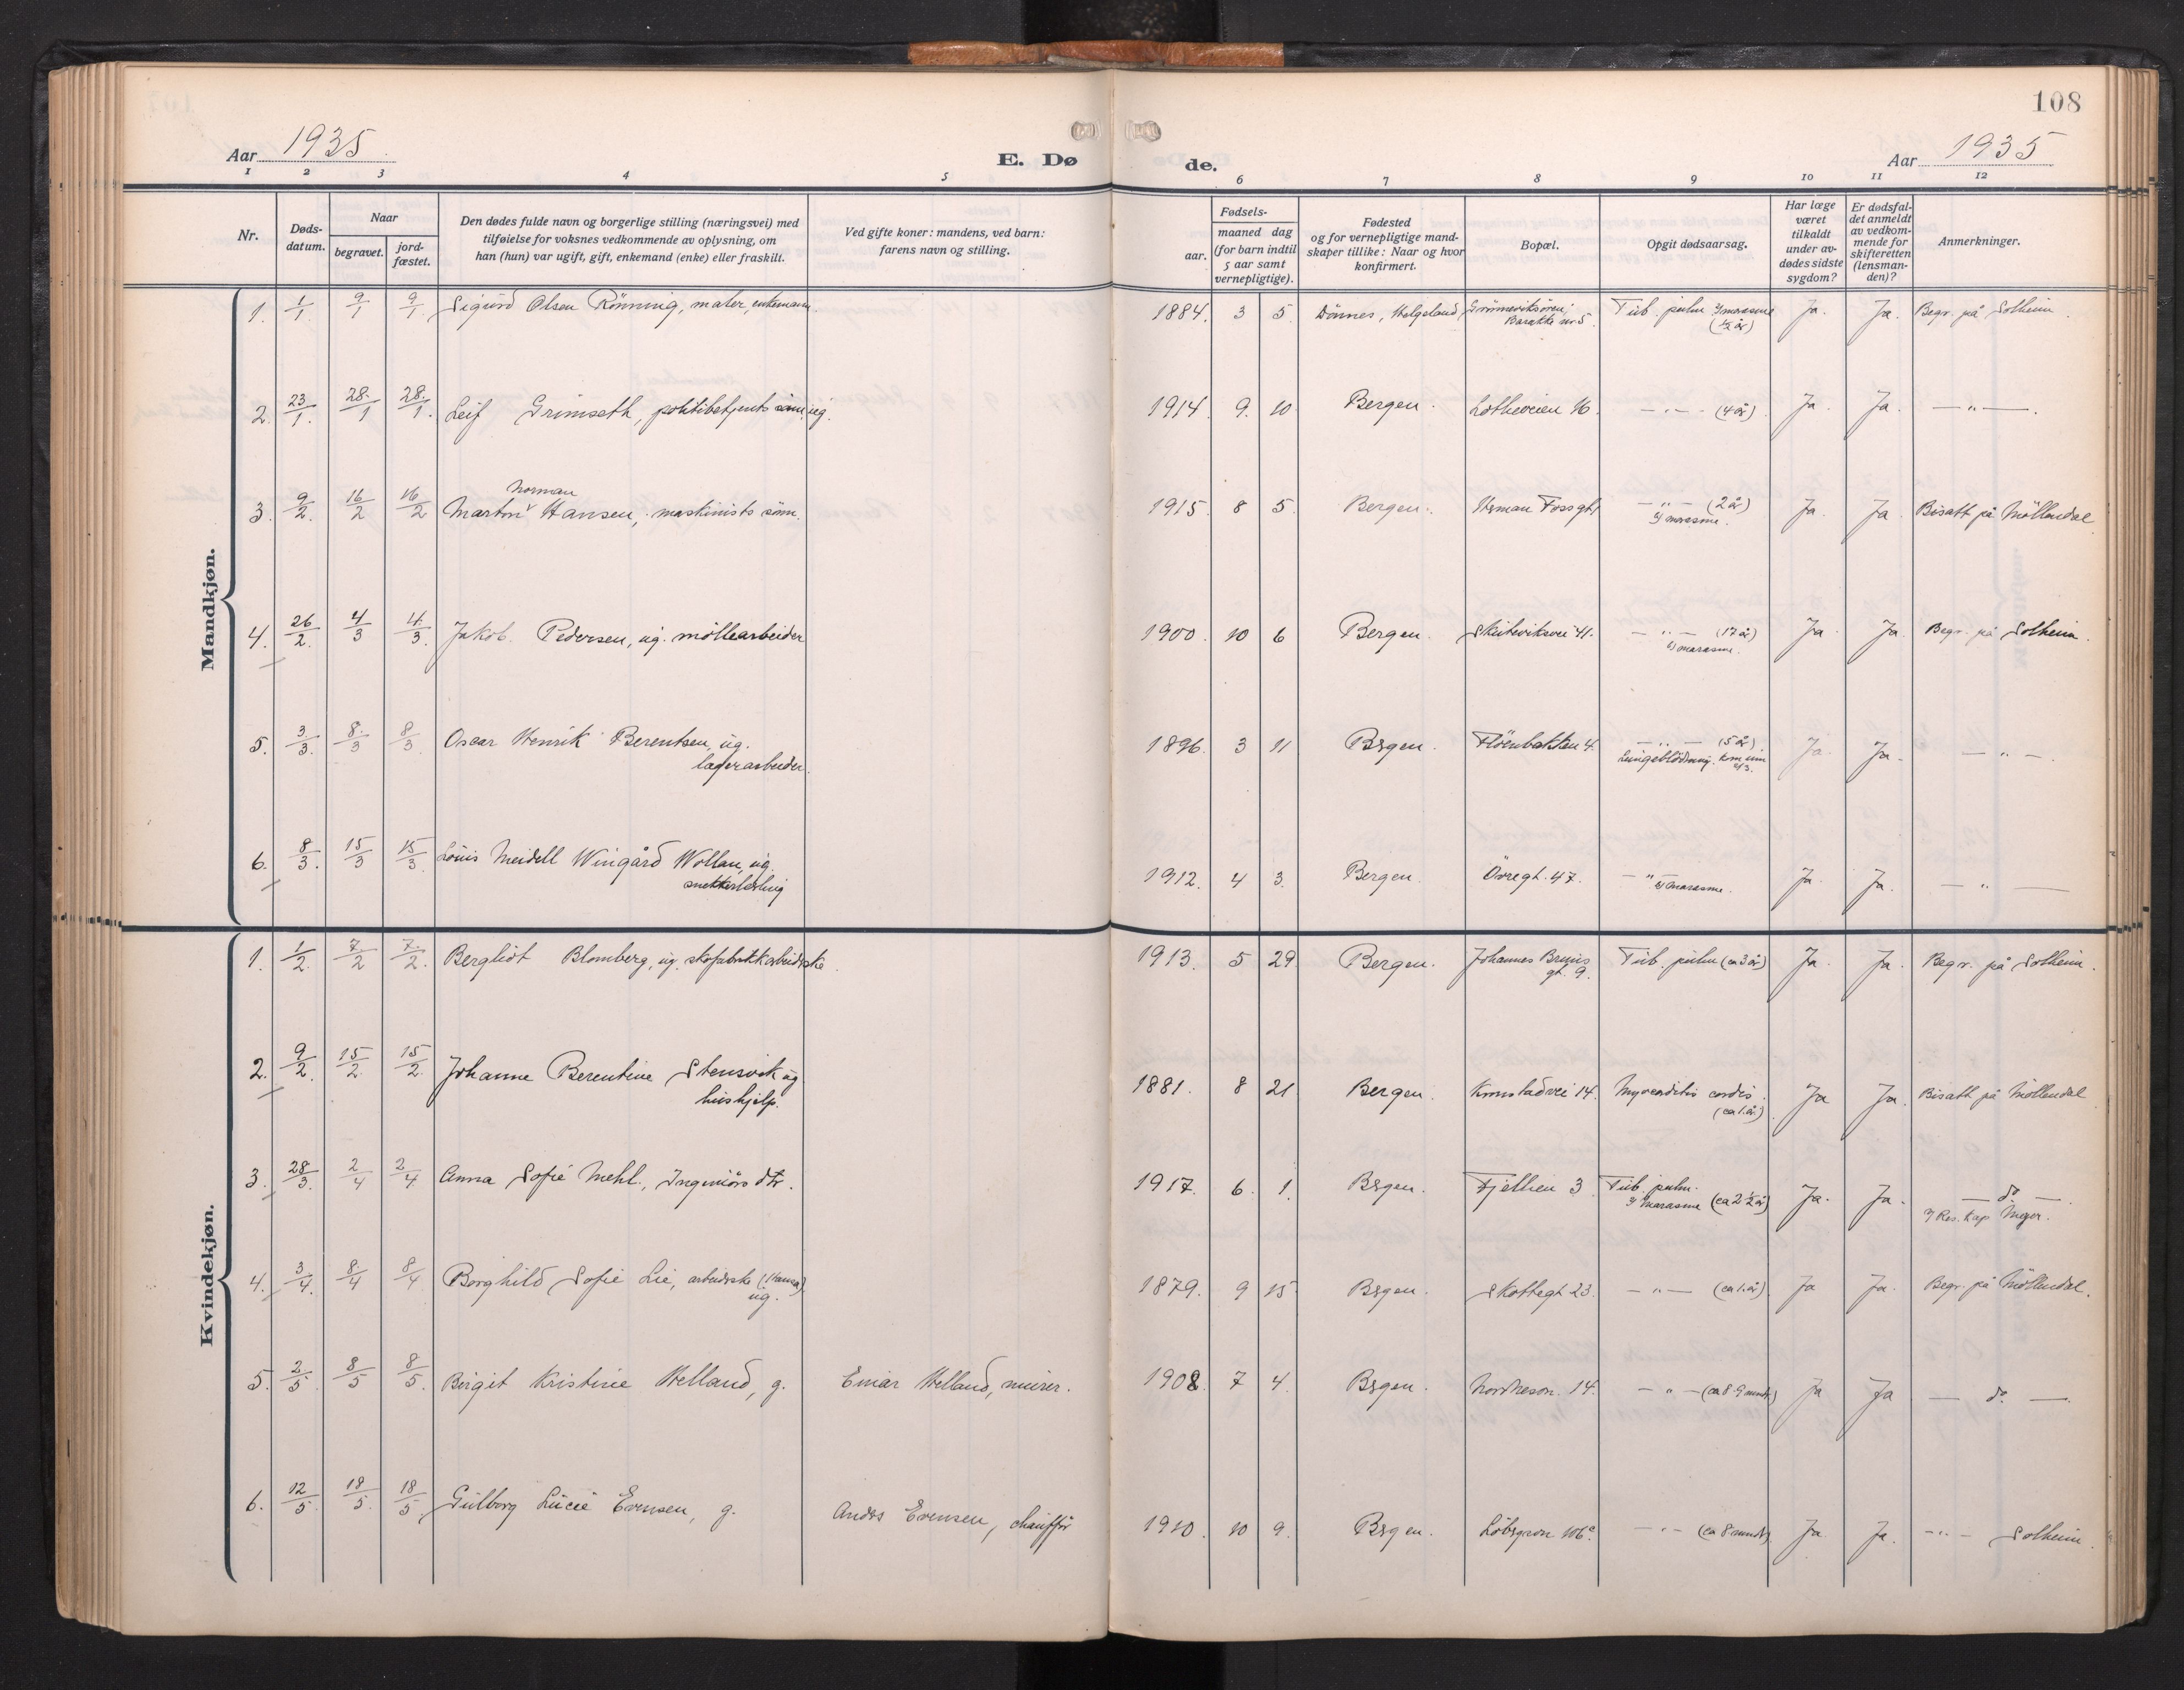 108
Aar 1935
E. Dø
de.
Aar 1935
1 2 3 4 5 6 7 8 9 10 11 12
Nr.
Døds-
datum.
Naar
begravet.
jord-
fæstet.
Den dødes fulde navn og borgerlige stilling (næringsvei) med
tilføielse for voksnes vedkommende av oplysning, om
han (hun) var ugift, gift, enkemand (enke) eller fraskilt.
Ved gifte koner: mandens, ved barn:
farens navn og stilling.
Fødsels-
aar. maaned dag
(for barn indtil
5 aar samt
vernepligtige).
Fødested
og for vernepligtige mand-
skaper tillike: Naar og hvor
konfirmert.
Bopæl.
Opgit dødsaarsag.
Har læge
været
tilkaldt
under av-
dødes sidste
sygdom?
Er dødsfal-
det anmeldt
av vedkom-
mende for
skifteretten
(lensman-
den)?
Anmerkninger.
Mandkjøn.
1. 1/1 9/1 9/1. Sigurd Olsen Rönning, maler, enkemann. 1884. 3 5. Dönnes, Helgeland Grönneviksören, Tub. pulm. Ja. Ja. Begr. på Solheim.
Barakke nr 5. marasme
(½ år)
2. 23/1. 28./1 28./1. Leif Grimseth, politibetjents sönn, ug. 1914. 9. 10 Bergen. Lotheveien 16. — " — (4 år) Ja. Ja. — " —.
Norman
3. 9/2. 16/2 16/2 Martin Hansen, maskinists sönn. 1915. 8 5. Bergen. Herman Fossgt 1 — " — (2 år) Ja. Ja. Bisatt på Möllendal
marasme.
4. 26/2. 4/3 4./3. Jakob Pedersen, ug. möllearbeider 1900. 10 6 Bergen. Skuteviksvei 41. — " — (17 år) Ja. Ja. Begr. på Solheim.
marasme.
5. 3/3. 8./3 8/3. Oscar Henrik Berentsen, ug. 1896. 3 11 Bergen. Flöenbakken 4. — " — (5 år). Ja. Ja. — " —.
lagerarbeider. Lungeblödning.
6. 8/3. 15/3 15/3. Louis Meidell Wingård Wollan, ug. 1912. 4 3. Bergen. Övregt. 47. — " — Ja. Ja. — " —
snekkerlærling marasme.
Kvindekjøn.
1. 1/2. 7./2 7./2. Bergliot Blomberg, ug. skofabrikkarbeiderske. 1913. 5 29 Bergen. Johannes Bruns Tub. pulm (ca 3 år) Ja. Ja. Begr. på Solheim.
gt. 9.
2. 9/2. 15/2. 15/2. Johanne Berentine Stensvik ug 1881. 8 21 Bergen. Kronstadvei 14. Myocarditis cordis. Ja Ja. Bisatt på Möllendal
hushjelp. (ca 1. år)
3. 28/3. 2/4 2/4. Anna Sofie Mehl., Ingeniörs dtr. 1917. 6. 1. Bergen. Fjellien 3 Tub. pulm. Ja. Ja. — do —.
marasme (ca 2 ½ år) Res. kap Meyer.
4. 3./4. 8/4 8/4 Borghild Sofie Lie, arbeiderske (Hansa) 1879. 9 15 Bergen. Skottegt 23. — " — (ca 1. år) Ja Ja. Begr. på Möllendal.
ug.
5. 2./5 8/5 8/5. Birgit Kristine Helland, g. Einar Helland, murer. 1908 7 4. Bergen. Nordnesvn. 14. — " — (ca 8-9 mndr) Ja Ja — do —.
6. 12/5. 18/5. 18/5. Gulborg Lucie Evensen, g. Anders Evensen, chauffør 1910. 10 9. Bergen. 106c. — " — (ca 8 mndr) Ja. Ja. — " — Solheim.